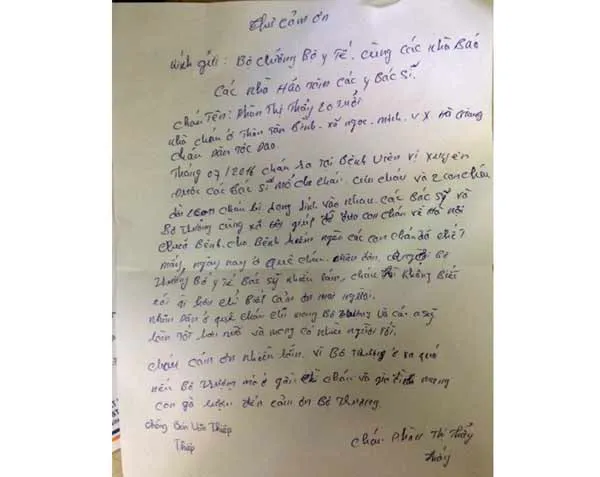 Thư cảm ơn
kính gửi: Bộ trưởng Bộ y Tế. cùng các nhà Báo
các nhà Hảo tâm các y Bác sĩ.
cháu Tên: Phàn Thị Thảy 20 tuổi
nhà cháu ở thôn Tân Bình. xã ngọc. minh. V X. Hà Giang
cháu Dân tộc Dao.
Tháng 07/2018 cháu ra tại Bệnh Viện Vị Xuyên
được các Bác sĩ mổ cho cháu. cứu cháu và 2 con cháu
đôi con cháu bị dong dính vào nhau. các Bác sỹ và
Bộ Trưởng cùng xã hội giúp để đưa con cháu về Hà nội
chữa Bệnh. cho Bệnh hiểm ngèo các con cháu đỡ chết
mấy, ngày nay ở quê cháu. nhân dân, Bộ
Trưởng Bộ y tế Bác sỹ nhiều lắm, cháu thì không Biết
nói gì hơn chỉ Biết cảm ơn mọi người.
nhân Dân ở quê cháu chỉ mong Bộ trưởng và các Bsỹ
làm tốt hơn nữa và mong có nhiều người tốt.
cháu cảm ơn nhiều lắm. vì Bộ Trưởng ở xa quá
nếu Bộ Trưởng mà ở gần thì cháu và gia đình mang
con gà rượu đến cảm ơn Bộ Trưởng.
chồng Bàn Văn Thiệp
Thiệp
Cháu Phàn Thị Thảy
Thảy